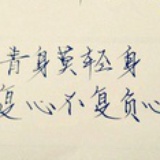 青身莫轻身
复心不复负心